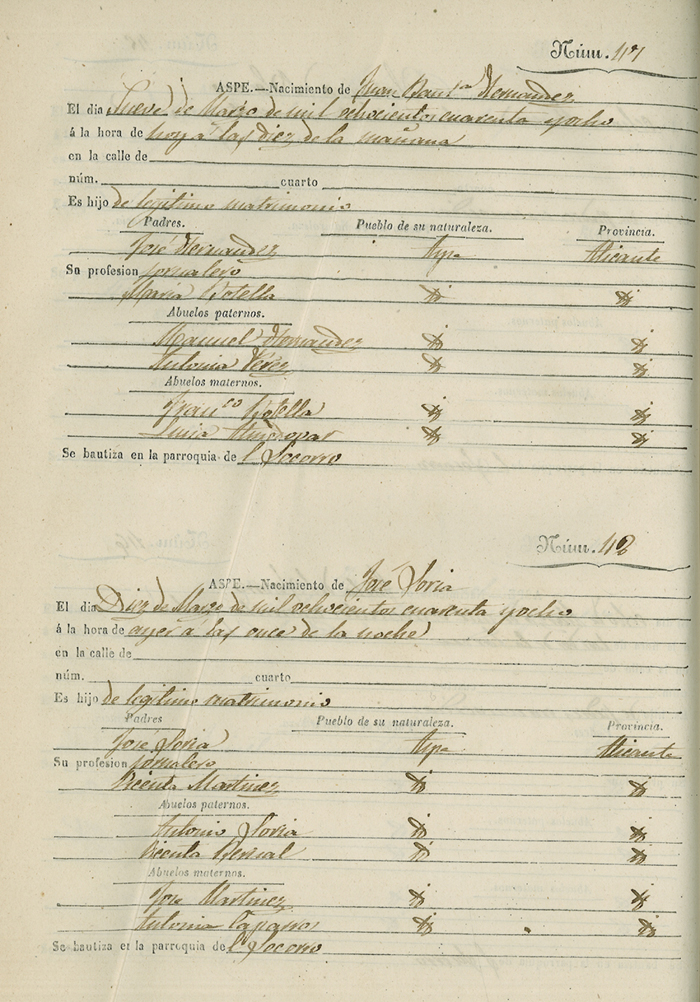 Núm. 117
ASPE.—Nacimiento de Juan Baut.ta Hernandez
El dia Nueve de Marzo de mil ochocientos cuarenta y ocho
á la hora de hoy á las diez de la mañana
en la calle de
núm. cuarto
Es hijo de legitimo matrimonio
Padres. Pueblo de su naturaleza. Provincia.
José Hernandez Aspe Alicante
Su profesion Jornalero
Maria Botella id id
Abuelos paternos.
Manuel Hernandez id id
Antonia Perez id id
Abuelos maternos.
Fran.co Botella id id
Luisa Almodovar id id
Se bautiza en la parroquia de l Socorro
Núm. 118
ASPE.—Nacimiento de José Soria
El dia Diez de Marzo de mil ochocientos cuarenta y ocho
á la hora de ayer á las once de la noche
en la calle de
núm. cuarto
Es hijo de legitimo matrimonio
Padres Pueblo de su naturaleza. Provincia.
José Soria Aspe Alicante
Su profesion Jornalero
Vicenta Martinez id id
Abuelos paternos.
Antonio Soria id id
Vicenta id id
Abuelos maternos.
Jose Martinez id id
Antonia id id
Se bautiza en la parroquia de l Socorro